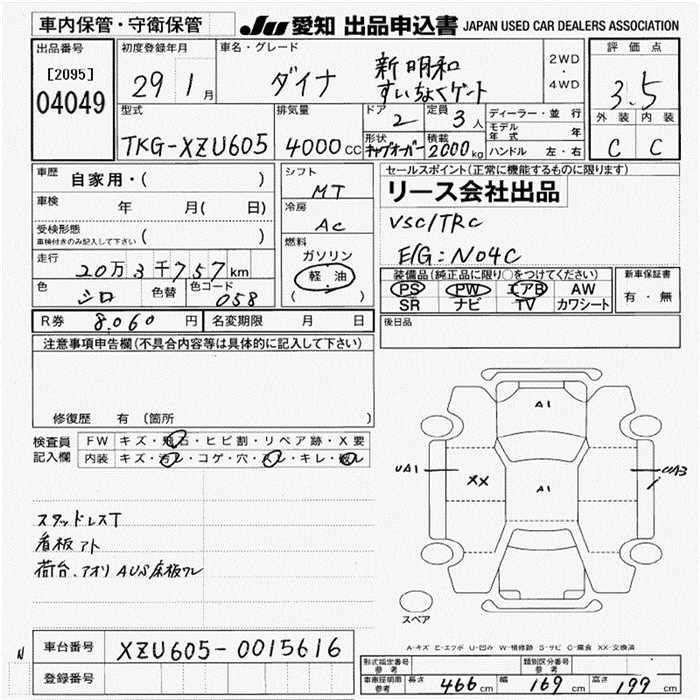 車内保管・守衛保管
JU 愛知 出品申込書 JAPAN USED CAR DEALERS ASSOCIATION
出品番号
[2095]
04049
初度登録年月
29 1 月
車名・グレード
ダイナ
新明和
すいちょくゲート
2WD
・
4WD
評価点
3.5
外装 内装
C C
型式
TKG-XZU605
排気量
4000 CC
ドア
2
定員
3 人
形状
キャブオーバー
積載
2000 kg
ディーラー・並行
モデル年式 年
ハンドル 左・右
車歴
自家用・( )
車検 年 月( 日)
受検形態
車検付きのみ記入して下さい ( )
走行
20万3千757km
色
シロ
色替
色コード
058
シフト
MT
冷房
AC
燃料
ガソリン
軽油
( )
セールスポイント(正常に機能するものに限ります)
リース会社出品
VSC/TRC
E/G:N04C
装備品(純正品に限り○をつけてください)
PS PW エアB AW
SR ナビ TV カワシート
新車保証書
有・無
R券 8.060 円 名変期限 月 日
後日品
注意事項申告欄(不具合内容等は具体的に記入して下さい)
修復歴 有(箇所 )
検査員記入欄
FW キズ・飛石・ヒビ割・リペア跡・X要
内装 キズ・汚レ・コゲ・穴・スレ・キレ・
スタッドレスT
看板アト
荷台、アオリ AUS 床板ワレ
A1
UA1
XX
A1
UA3
スペア
A-キズ E-エクボ U-凹み W-補修跡 S-サビ C-腐食 XX-交換済
N
車台番号 XZU605-0015616
登録番号
形式指定番号 参考
類別区分番号 参考
車庫証明用 参考 長さ 466 cm 幅 169 cm 高さ 199 cm